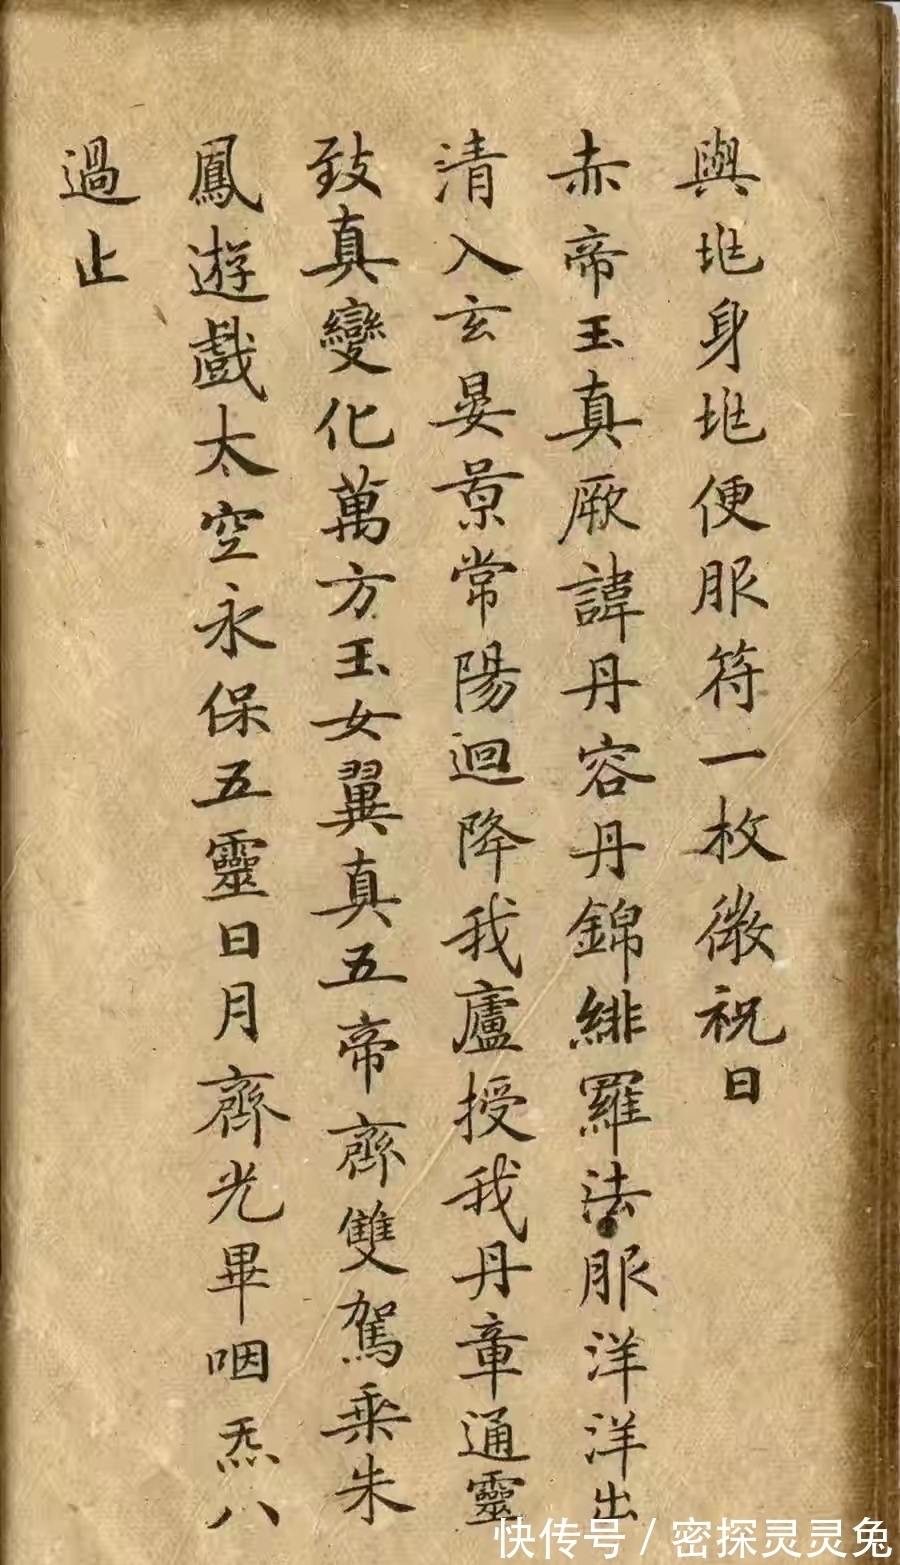 與兆身兆便服符一枚微祝曰
赤帝玉真厥諱丹容丹錦緋羅法服洋洋出
清入玄晏景常陽迴降我廬授我丹章通靈
致真變化萬方玉女翼真五帝齊雙駕乘朱
鳳遊戲太空永保五靈日月齊光畢咽炁八
過止
快传号 / 密探灵灵兔